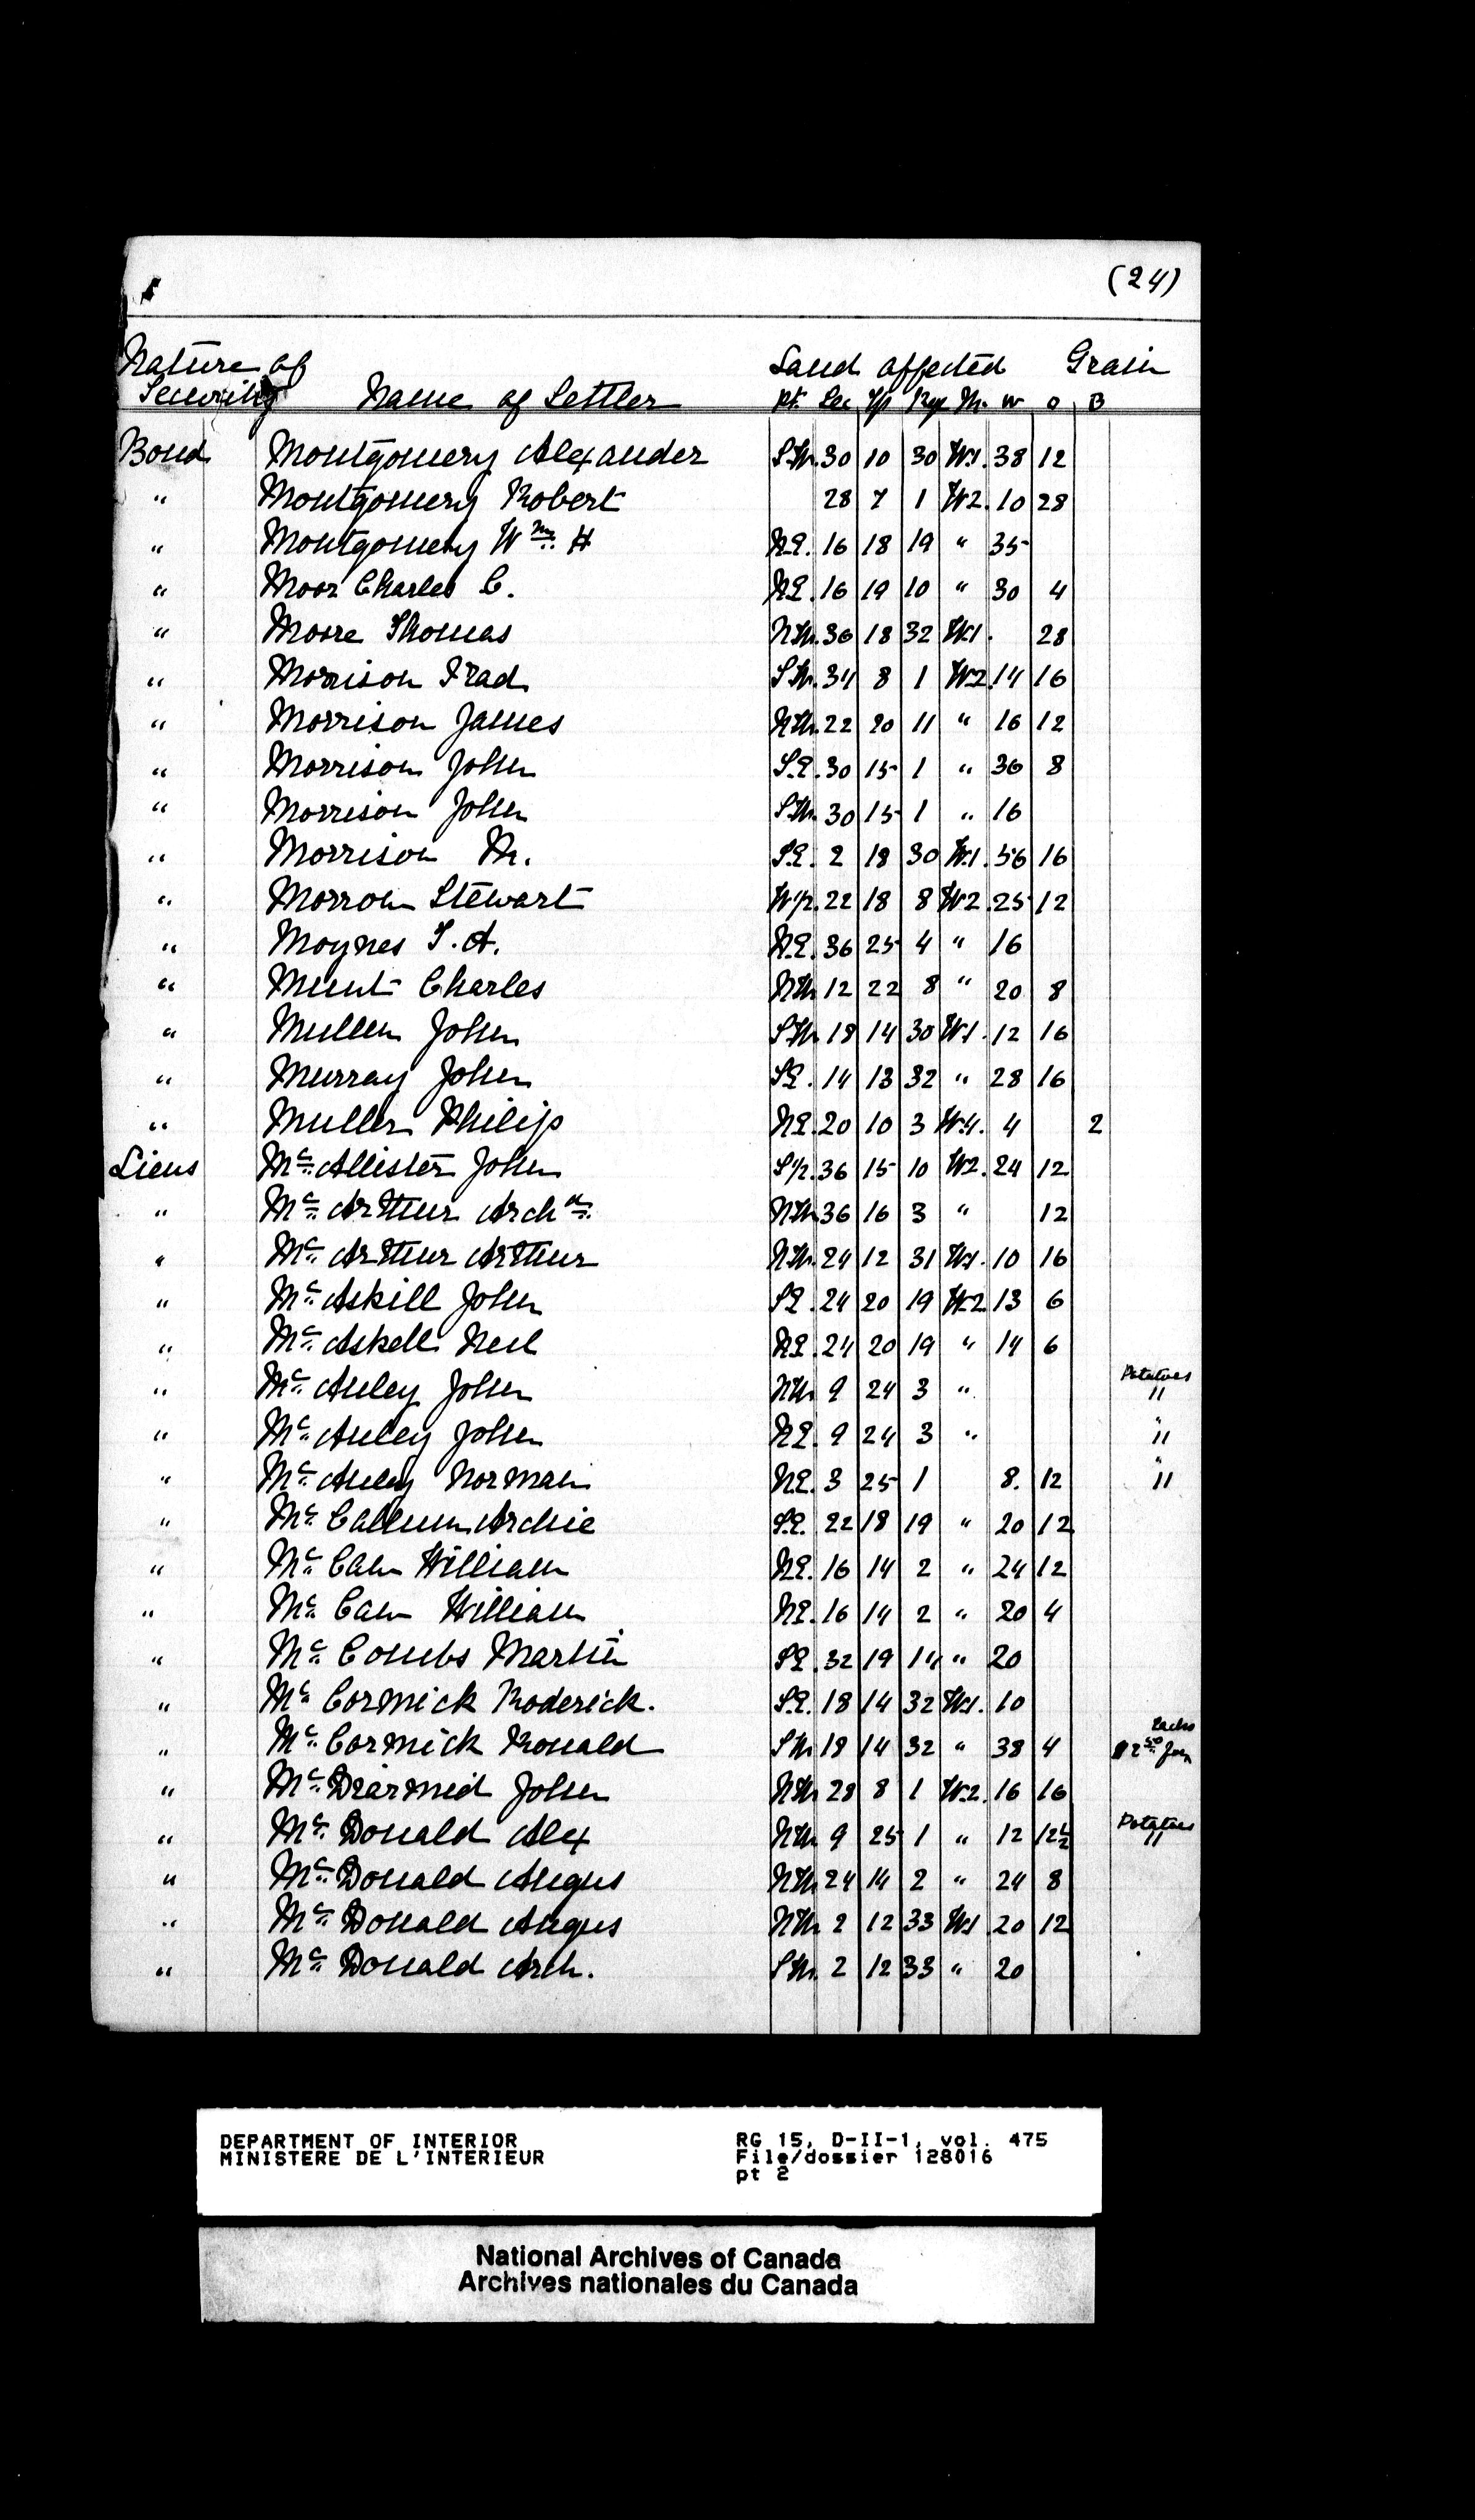 (24)
Nature of Land affected Grain
Security Name of Settler Pt. Sec Tp Rge M. W O B
Bond Montgomery Alexander S.W. 30 10 30 W1. 38 12
" Montgomery Robert 28 7 1 W2. 10 28
" Montgomery Wm. H N.E. 16 18 19 " 35
" Moor Charles C. N.E. 16 19 10 " 30 4
" Moore Thomas N.W. 36 18 32 W1. 28
" Morrison Frad S.W. 34 8 1 W2. 14 16
" Morrison James N.W. 22 20 11 " 16 12
" Morrison John S.E. 30 15 1 " 36 8
" Morrison John S.W. 30 15 1 " 16
" Morrison M. S.E. 2 18 30 W1. 56 16
" Morrow Stewart W½. 22 18 8 W2. 25 12
" Moynes T. A. N.E. 36 25 4 " 16
" Munt Charles N.W. 12 22 8 " 20 8
" Mullen John S.W. 18 14 30 W1. 12 16
" Murray John S.E. 14 13 32 " 28 16
" Muller Philip N.E. 20 10 3 W4. 4 2
Liens Mc Allister John S½. 36 15 10 W2. 24 12
" Mc Arthur Archd. N.W. 36 16 3 " 12
" Mc Arthur Arthur N.W. 24 12 31 W1. 10 16
" Mc Askill John S.E. 24 20 19 W2. 13 6
" Mc Askell Neil N.E. 24 20 19 " 14 6
" Mc Auley John N.W. 9 24 3 " Potatoes 11
" Mc Auley John N.E. 9 24 3 " " 11
" Mc Auley Norman N.E. 3 25 1 8. 12 " 11
" Mc Callum Archie S.E. 22 18 19 " 20 12
" Mc Caw William N.E. 16 14 2 " 24 12
" Mc Caw William N.E. 16 14 2 " 20 4
" Mc Combs Martin S.E. 32 19 14 " 20
" Mc Cormick Roderick. S.E. 18 14 32 W1. 10
" Mc Cormick Ronald S.W. 18 14 32 " 38 4 $2 50
" Mc Diarmid John N.W. 28 8 1 W2. 16 16
" Mc Donald Alex N.W. 9 25 1 " 12 12½ Potatoes 11
" Mc Donald Angus N.W. 24 14 2 " 24 8
" Mc Donald Angus N.W. 2 12 33 W1 20 12
" Mc Donald Arch. S.W. 2 12 33 " 20
DEPARTMENT OF INTERIOR RG 15, D-II-1, vol. 475
MINISTERE DE L'INTERIEUR File/dossier 128016
pt 2
National Archives of Canada
Archives nationales du Canada